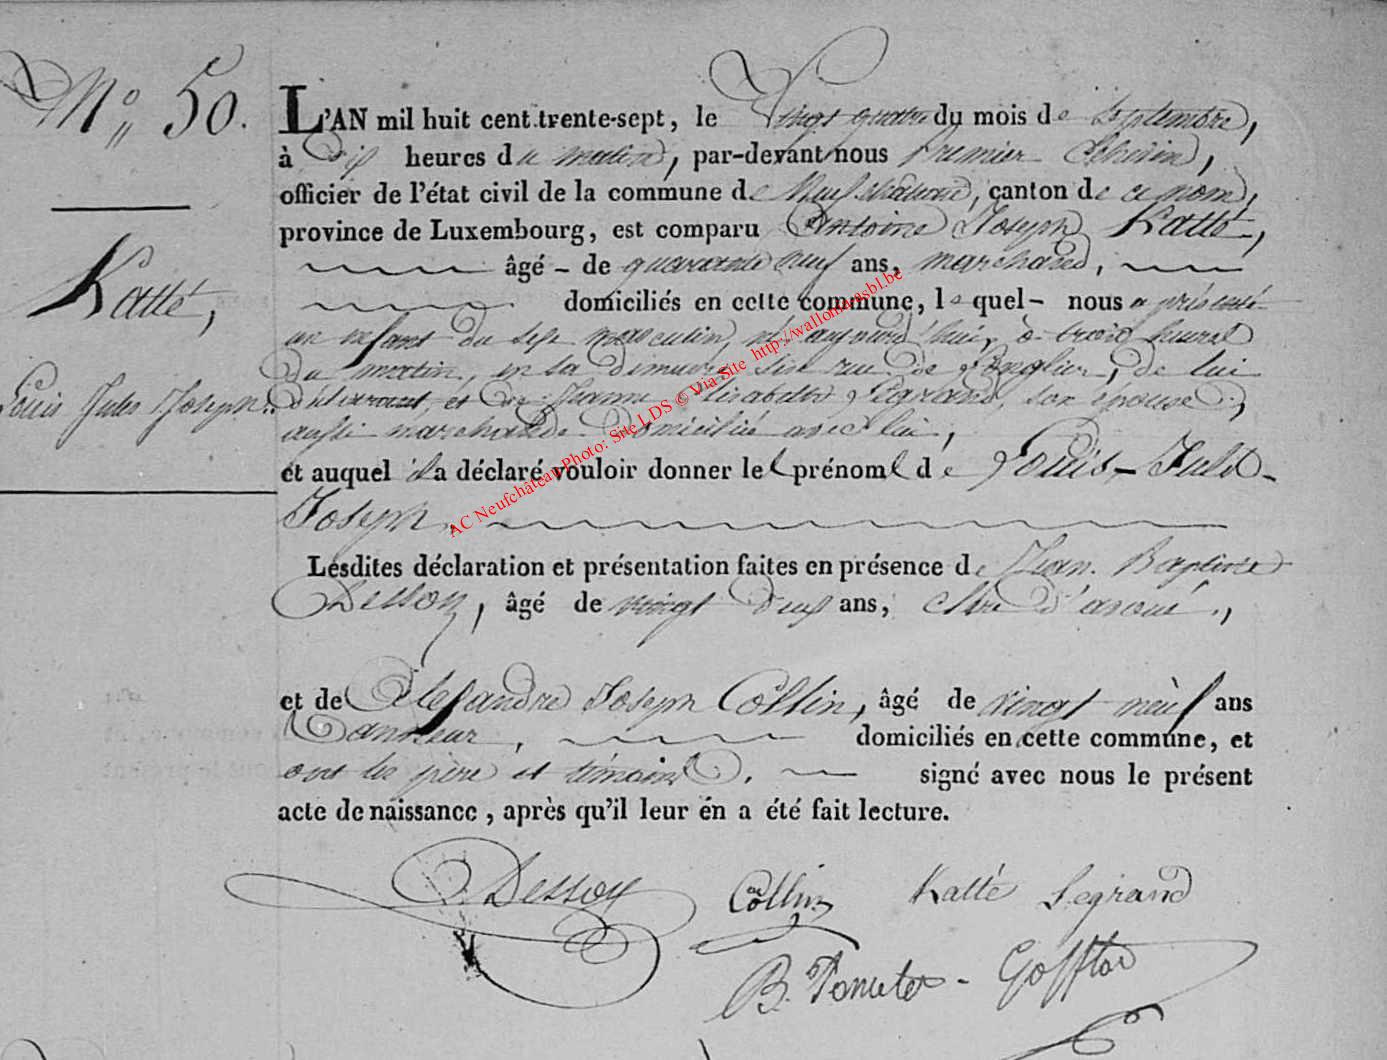 N° 50.
Katté,
Louis Jules Joseph.
L'AN mil huit cent trente-sept, le Vingt quatre du mois de Septembre,
à dix heures du matin, par-devant nous Premier Echevin,
officier de l'état civil de la commune de Neufchâteau, canton de ce nom,
province de Luxembourg, est comparu Antoine Joseph Katté,
âgé - de quarante neuf ans, marchand,
domiciliés en cette commune, lequel - nous a présenté
un enfant du sexe masculin, né aujourd'hui, à trois heures
du matin, en sa demeure, sise rue de , de lui
déclarant, et de Jeanne Elisabeth Legrand, son épouse,
aussi marchande domiciliée avec lui,
et auquel il a déclaré vouloir donner les prénoms de Louis - Jules -
Joseph.
Lesdites déclaration et présentation faites en présence de Jean Baptiste
Dessoy, âgé de vingt deux ans, clerc d'avoué,
et de Alexandre Joseph Collin, âgé de vingt neuf ans
Tanneur, domiciliés en cette commune, et
ont les père et témoins signé avec nous le présent
acte de naissance, après qu'il leur en a été fait lecture.
Dessoy Collin Katté Legrand
B.
AC Neufchateau Photo: Site LDS © Via Site http://wallonia-asbl.be